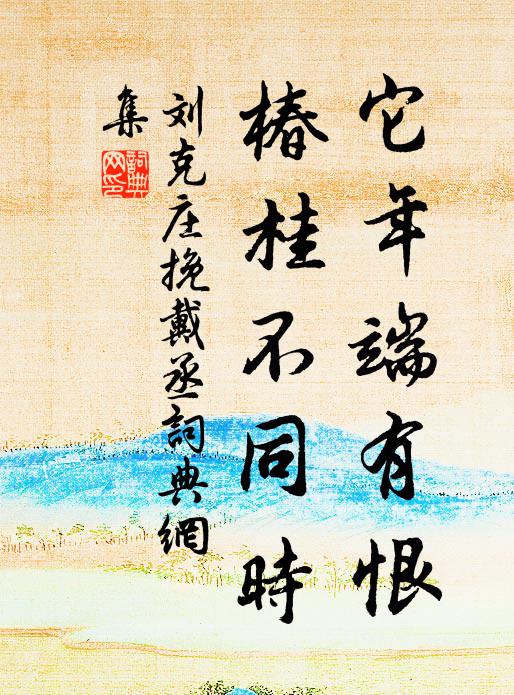 它年端有恨
椿桂不同時
刘克庄挽戴丞詞典網
集
詞典
网印